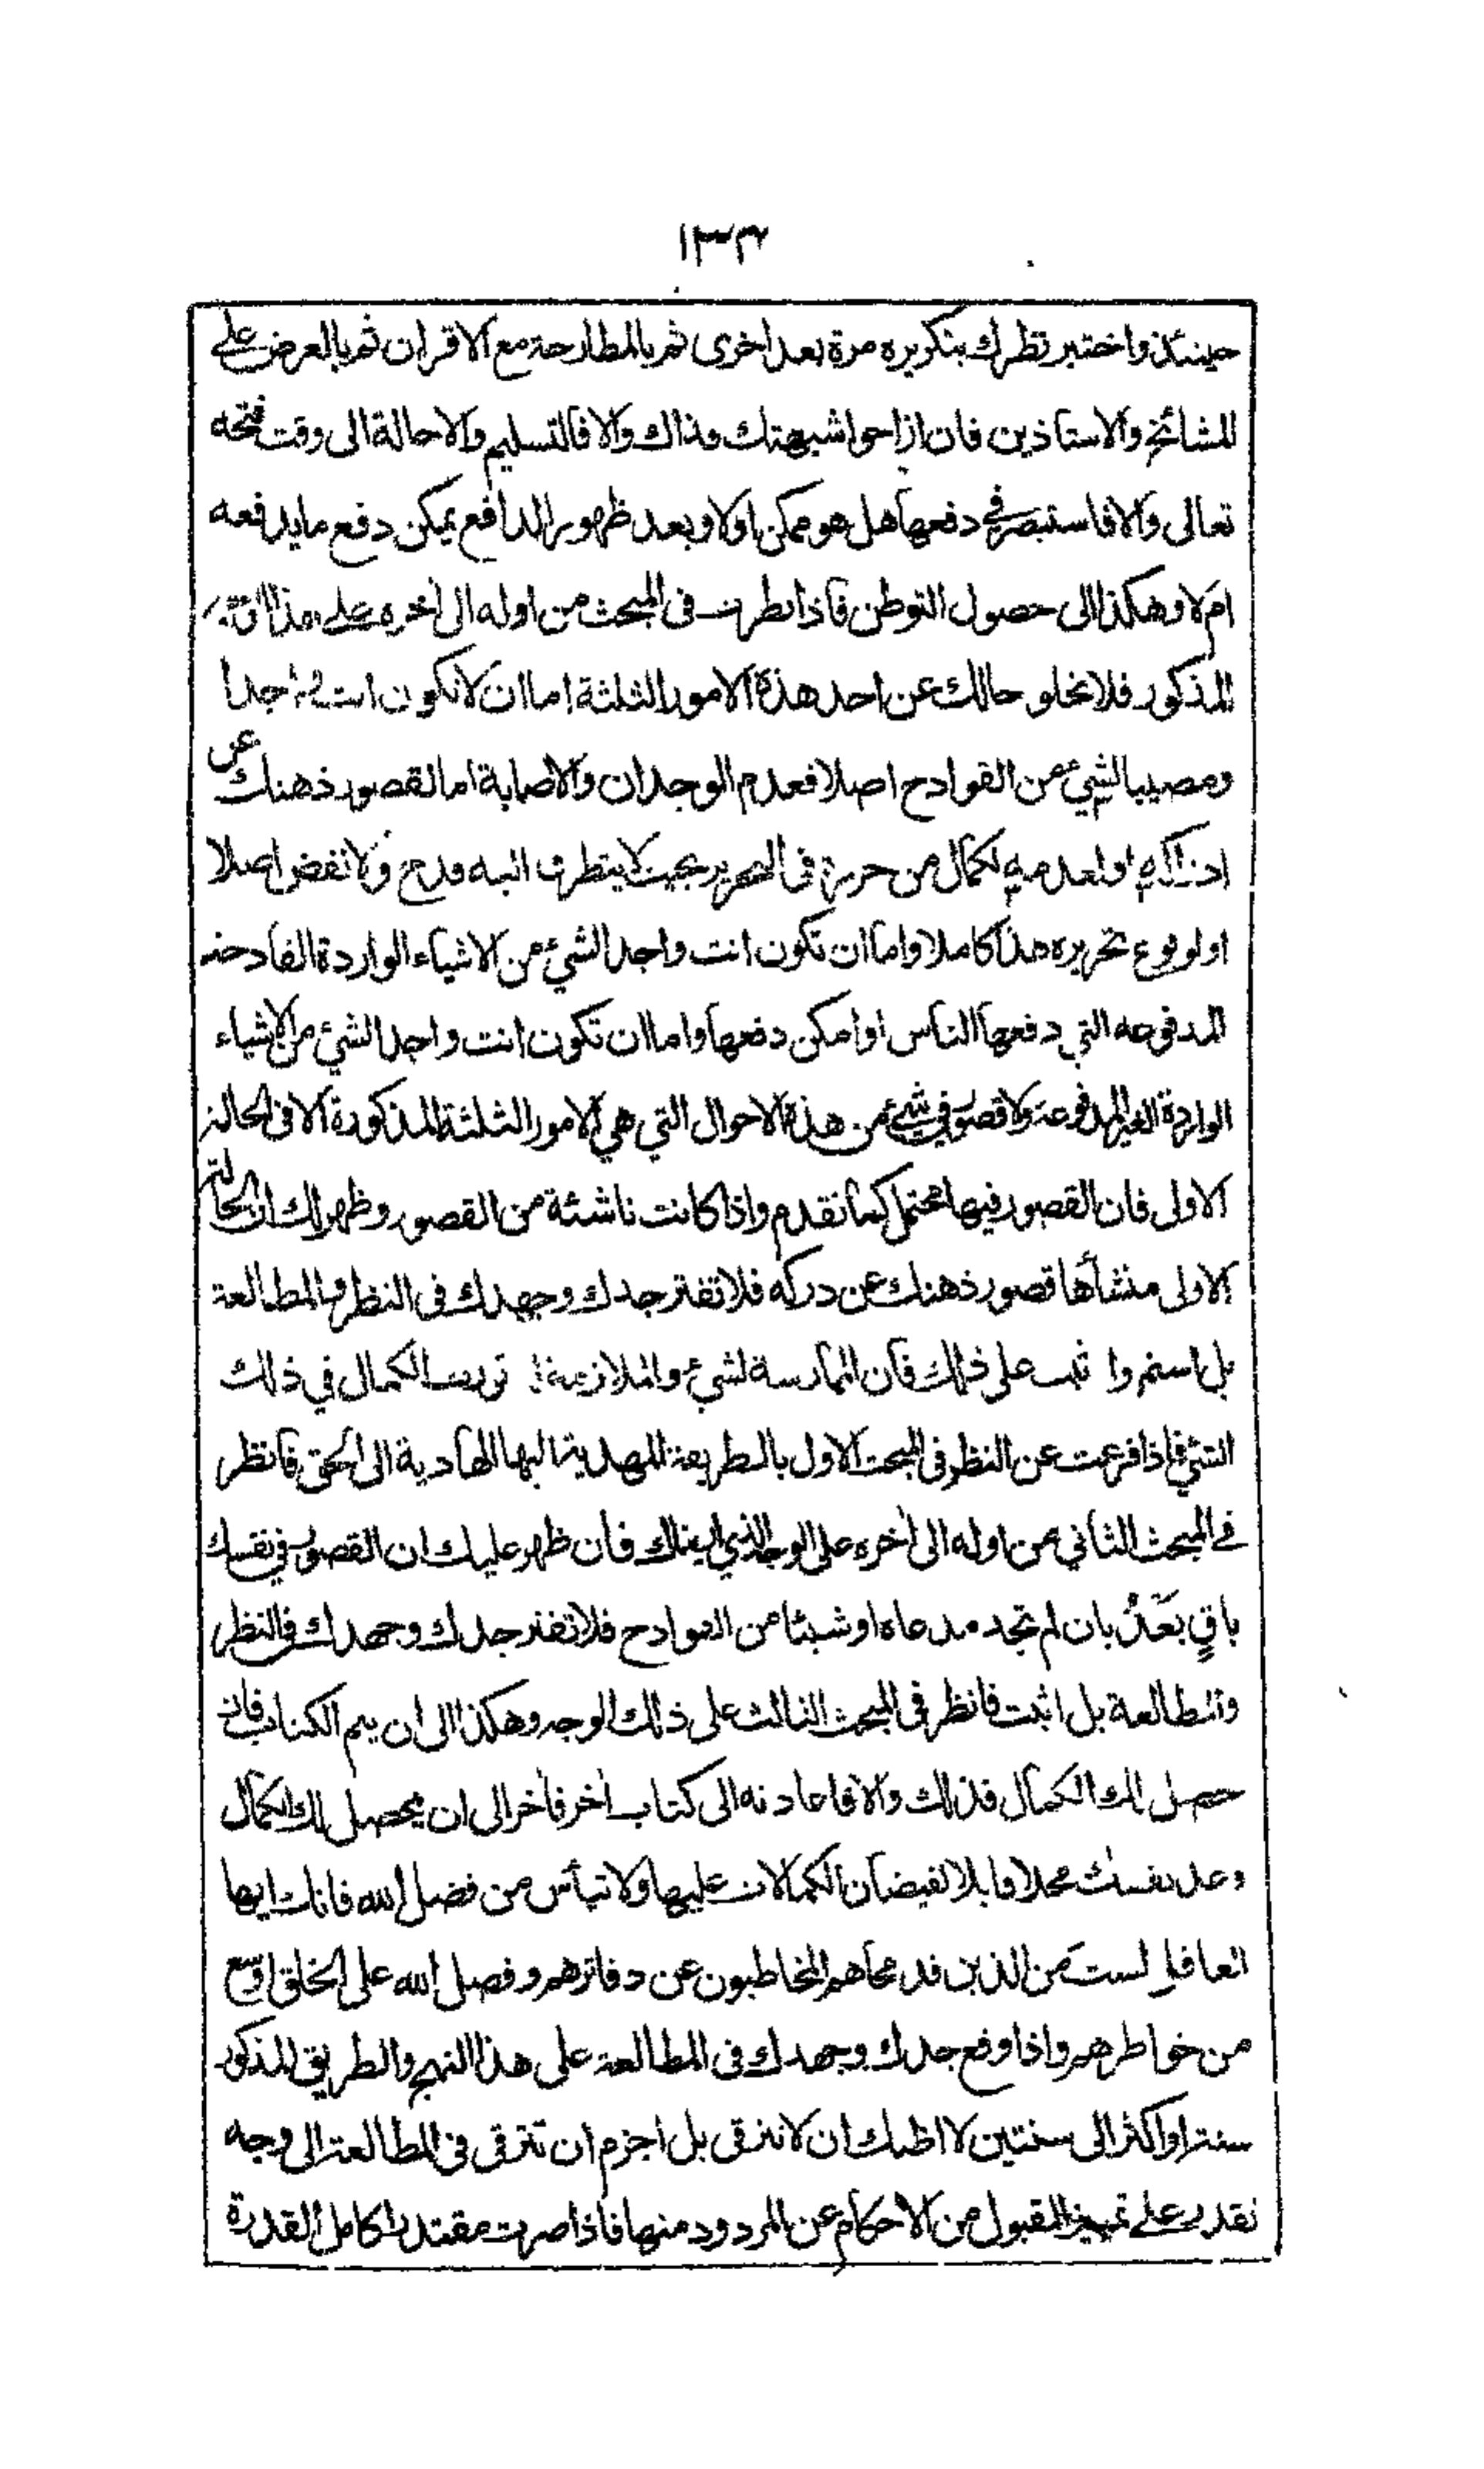 ١٣٣
حينئذ واختبر نظرك بتكريره مرة بعد اخرى ثم بالمطارحة مع الاقران ثم بالعرض على
المشائخ والاستاذين فان ازاحوا شبهتك فذاك والا فالتسليم والاحالة الى وقت فتحه
تعالى والا فاستبصر في دفعها هل هو ممكن اولا وبعد ظهور الدافع يمكن دفع ما يدفعه
ام لا وهكذا الى حصول التوطن فاذا نظرت فى المبحث من اوله الى اخره على هذا
المذكور فلا يخلو حالك عن احد هذه الامور الثلثة اما ان لا تكون انت واجدا
ومصيبا لشيء من القوادح اصلا فعدم الوجدان والاصابة اما لقصور ذهنك عن
ادراكه او لعدميه لكمال من حرره فى التحرير بحيث لا يتطرف اليه قدح ولا نقض اصلا
او لوقوع تحريره هذا كاملا واما ان تكون انت واجد الشيء من الاشياء الواردة القادحة
المدفوعه التي دفعها الناس او امكن دفعها واما ان تكون انت واجد الشيء من الاشياء
الواردة الغير المدفوعة ولا قصور في شيء من هذه الاحوال التي هي الامور الثلثة المذكورة الا في الحالة
الاولى فان القصور فيها محتمل كما تقدم واذا كانت ناشئة من القصور وظهر لك ان الحالة
الاولى منشأها قصور ذهنك عن دركه فلا تفتر جدك وجهدك فى النظر والمطالعة
بل استمر واثبت على ذلك فان الممارسة لشيء والملازمة له تورث الكمال في ذلك
الشيء فاذا فرغت عن النظر فى المبحث الاول بالطريقة المهدية اليها الهادية الى الحق فانظر
في المبحث الثاني من اوله الى اخره على الوجه الذي اريناك فان ظهر عليك ان القصور في نفسك
باقٍ بعدُ بان لم تجد مدعاه او شيئا من القوادح فلا تفتر جدك وجهدك في النظر
والمطالعة بل اثبت فانظر فى المبحث الثالث على ذلك الوجه وهكذا الى ان يتم الكتاب فان
حصل لك الكمال فذلك والا فاعاد نه الى كتاب اخر فاخر الى ان يحصل لك الكمال
وعد نفسك محلا قابلا لفيضان الكمالات عليها ولا تيأس من فضل الله فانك ايها
العاقل لست من الذين قد محاهم المخاطبون عن دفاترهم وفضل الله على الخلق اوسع
من خواطرهم واذا وقع جدك وجهدك فى المطالعة على هذا النهج والطريق المذكور
سنة او اكثر الى سنتين لا اظنك ان لا تترقى بل اجزم ان تترقى فى المطالعة الى وجه
تقدر على تمييز المقبول من الاحكام عن المردود منها فاذا صرت مقتدرا كامل القدرة